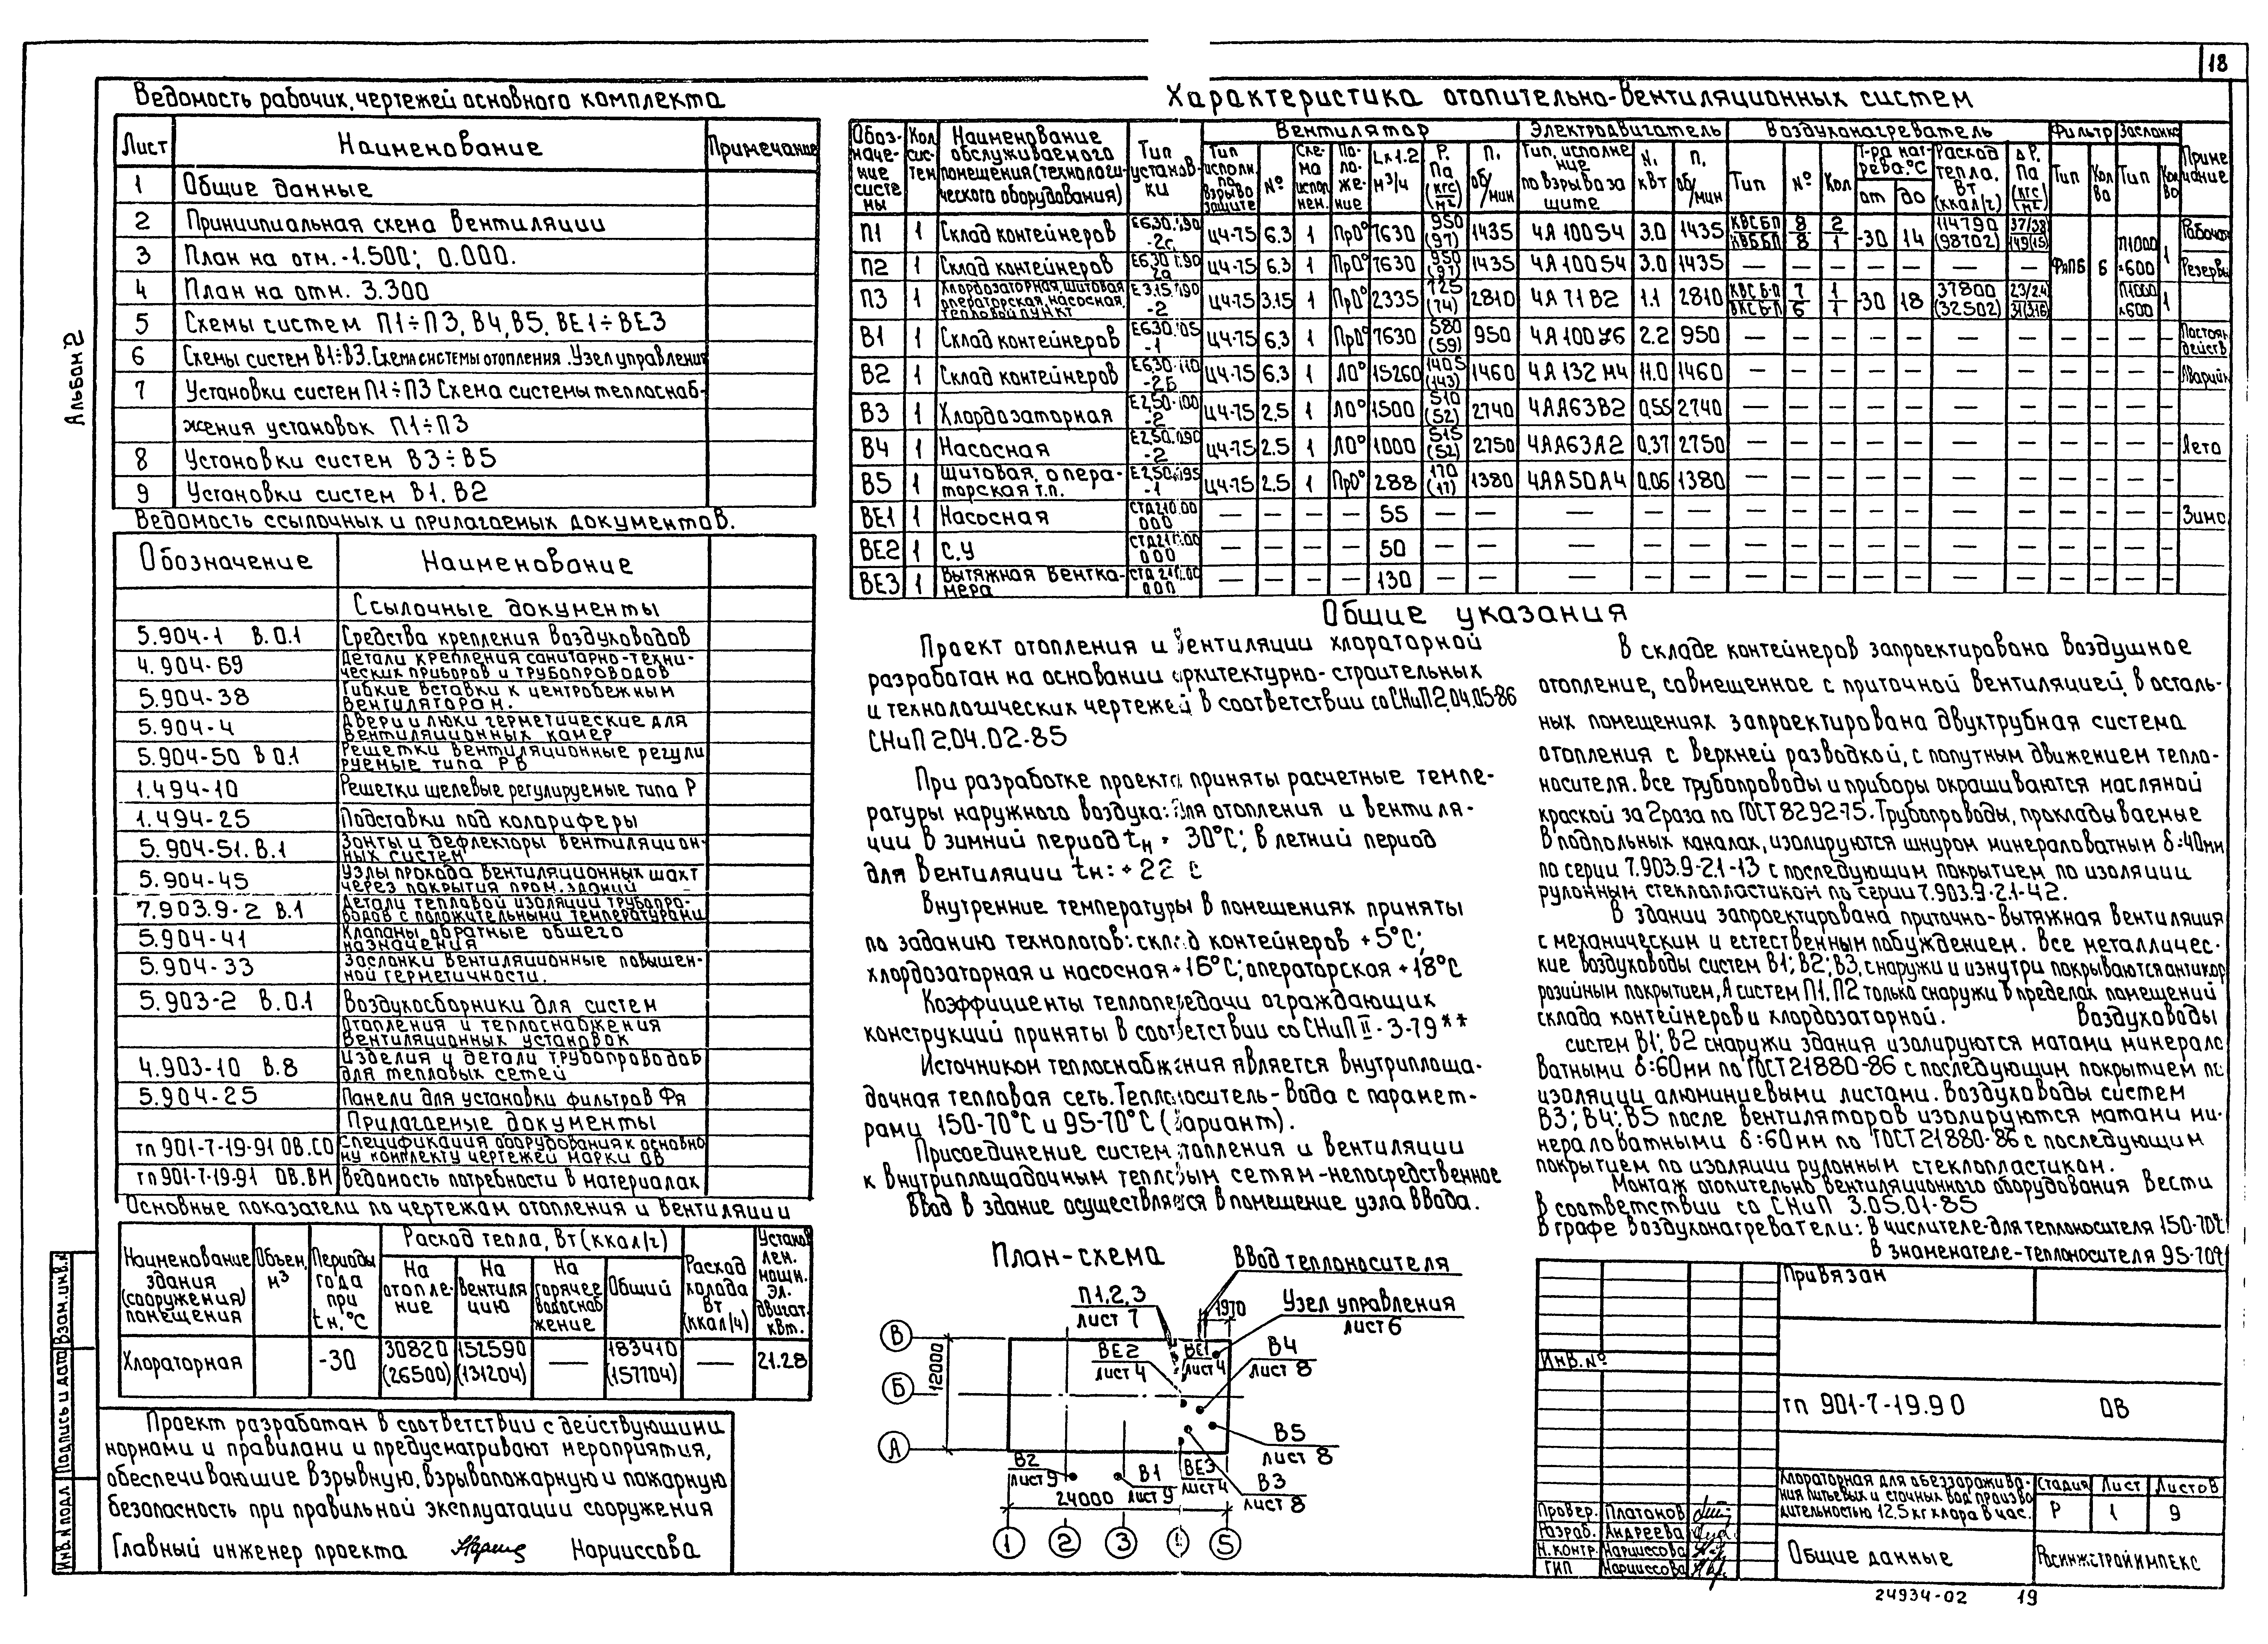 18
Альбом 2
Ведомость рабочих чертежей основного комплекта
Лист Наименование Примечание
1 Общие данные
2 Принципиальная схема вентиляции
3 План на отм. -1.500; 0.000.
4 План на отм. 3.300
5 Схемы систем П1÷П3, В4, В5, ВЕ1÷ВЕ3
6 Схемы систем В1÷В3. Схема системы отопления. Узел управления
7 Установки систем П1÷П3 Схема системы теплоснаб-
жения установок П1÷П3
8 Установки систем В3÷В5
9 Установки систем В1, В2
Ведомость ссылочных и прилагаемых документов.
Обозначение Наименование
Ссылочные документы
5.904-1 В.0.1 Средства крепления воздуховодов
4.904-69 Детали крепления санитарно-техни-
ческих приборов и трубопроводов
5.904-38 Гибкие вставки к центробежным
вентиляторам.
5.904-4 Двери и люки герметические для
вентиляционных камер
5.904-50 В 0.1 Решетки вентиляционные регули
руемые типа РВ
1.494-10 Решетки щелевые регулируемые типа Р
1.494-25 Подставки под колориферы
5.904-51.В.1 Зонты и дефлекторы вентиляцион-
ных систем
5.904-45 Узлы прохода вентиляционных шахт
через покрытия пром. зданий
7.903.9-2 В.1 Детали тепловой изоляции трубопро-
водов с положительными температурами
5.904-41 Клапаны обратные общего
назначения
5.904-33 Заслонки вентиляционные повышен-
ной герметичности.
5.903-2 В.0.1 Воздухосборники для систем
отопления и теплоснабжения
вентиляционных установок
4.903-10 В.8 Изделия и детали трубопроводов
для тепловых сетей
5.904-25 Панели для установки фильтров Фя
Прилагаемые документы
тп 901-7-19-91 ОВ.СО Спецификация оборудования к основно
му комплекту чертежей марки ОВ
тп 901-7-19-91 ОВ.ВМ Ведомость потребности в материалах
Основные показатели по чертежам отопления и вентиляции
Наименование здания (сооружения) помещения Объем, м³ Периоды года при tн, °С Расход тепла, Вт (ккал/г) Расход холода Вт (ккал/ч) Установлен. мощн. эл. двигат. квт.
На отопление На вентиляцию На горячее водоснабжение Общий
Хлораторная -30 30820 (26500) 152590 (131204) — 183410 (157704) — 21.28
Проект разработан в соответствии с действующими
нормами и правилами и предусматривают мероприятия,
обеспечивающие взрывную, взрывопожарную и пожарную
безопасность при правильной эксплуатации сооружения
Главный инженер проекта Нарциссова
Характеристика отопительно-вентиляционных систем
Обозначение системы Кол систем Наименование обслуживаемого помещения (технологического оборудования) Тип установки Вентилятор Электродвигатель Воздухонагреватель Фильтр Заслонка Примечание
Тип исполн. по взрывозащите № Схема исполнен. Положение Lх1.2 м³/ч Р, Па (кгс/м²) п, об/мин Тип, исполнение по взрывозащите N, кВт п, об/мин Тип № Кол Т-ра нагрева °С от до Расход тепла, Вт (ккал/г) ΔР, Па (кгс/м²) Тип Кол во Тип Кол во
П1 1 Склад контейнеров Е6.30.1.90-2с Ц4-75 6.3 1 Пр0° 7630 950 (97) 1435 4А100S4 3.0 1435 КВСБП КВББП 8 8 2 1 -30 14 114790 (98702) 37/38 149(15) ФЯПБ 6 П1000×600 1 Рабочая
П2 1 Склад контейнеров Е6.30.1.90 2а Ц4-75 6.3 1 Пр0° 7630 950 (97) 1435 4А100S4 3.0 1435 — — — — — Резервн
П3 1 Хлордозаторная, щитовая операторская, насосная, тепловой пункт Е3.15.1.90-2 Ц4-75 3.15 1 Пр0° 2335 725 (74) 2810 4А71В2 1.1 2810 КВСБ-П ВКСБ-П 7 6 1 1 -30 18 37800 (32502) 23/24 31(3.16) П1000×600 1
В1 1 Склад контейнеров Е6.30.105-1 Ц4-75 6.3 1 Пр0° 7630 580 (59) 950 4А100L6 2.2 950 — — — — — — — — — — — Постоян действ
В2 1 Склад контейнеров Е6.30.110-2б Ц4-75 6.3 1 Л0° 15260 1405 (143) 1460 4А132М4 11.0 1460 — — — — — — — — — — — Аварийн
В3 1 Хлордозаторная Е2.50.100-2 Ц4-75 2.5 1 Л0° 1500 510 (52) 2740 4АА63В2 0.55 2740 — — — — — — — — — — —
В4 1 Насосная Е2.50.090-2 Ц4-75 2.5 1 Л0° 1000 515 (52) 2750 4АА63А2 0.37 2750 — — — — — — — — — — — Лето
В5 1 Щитовая, опера-торская т.п. Е2.50.195-1 Ц4-75 2.5 1 Пр0° 288 170 (17) 1380 4АА50А4 0.06 1380 — — — — — — — — — — —
ВЕ1 1 Насосная СТД210.00 000 — — — — 55 — — — — — — — — — — — — — — — — Зимо
ВЕ2 1 С.У СТД210.00 000 — — — — 50 — — — — — — — — — — — — — — — —
ВЕ3 1 Вытяжная вентка-мера СТД210.00 000 — — — — 130 — — — — — — — — — — — — — — — —
Общие указания
Проект отопления и вентиляции хлораторной
разработан на основании архитектурно-строительных
и технологических чертежей в соответствии со СНиП2.04.05-86
СНиП 2.04.02-85
При разработке проекта приняты расчетные темпе-
ратуры наружного воздуха: для отопления и вентиля-
ции в зимний период tн = 30°С; в летний период
для вентиляции tн: + 22 С
Внутренние температуры в помещениях приняты
по заданию технологов: склад контейнеров + 5°С;
хлордозаторная и насосная +16°С; операторская +18°С
Коэффициенты теплопередачи ограждающих
конструкций приняты в соответствии со СНиП II-3-79**
Источником теплоснабжения является внутриплоща-
дочная тепловая сеть. Теплоноситель-вода с парамет-
рами 150-70°С и 95-70°С (вариант).
Присоединение систем отопления и вентиляции
к внутриплощадочным тепловым сетям-непосредственное
Ввод в здание осуществляется в помещение узла ввода.
В складе контейнеров запроектировано воздушное
отопление, совмещенное с приточной вентиляцией, в осталь-
ных помещениях запроектирована двухтрубная система
отопления с верхней разводкой, с попутным движением тепло-
носителя. Все трубопроводы и приборы окрашиваются масляной
краской за 2раза по ГОСТ8292-75. Трубопроводы, прокладываемые
в подпольных каналах, изолируются шнуром минераловатным δ=40мм
по серии 7.903.9-2.1-13 с последующим покрытием по изоляции
рулонным стеклопластиком по серии 7.903.9-2.1-42.
В здании запроектирована приточно-вытяжная вентиляция
с механическим и естественным побуждением. Все металличес-
кие воздуховоды систем В1; В2; В3, снаружи и изнутри покрываются антикор
розийным покрытием, А систем П1, П2 только снаружи в пределах помещений
склада контейнеров и хлордозаторной. Воздуховоды
систем В1; В2 снаружи здания изолируются матами минерало
ватными δ=60мм по ГОСТ21880-86 с последующим покрытием по
изоляции алюминиевыми листами. Воздуховоды систем
В3; В4; В5 после вентиляторов изолируются матами ми-
нераловатными δ=60мм по ГОСТ21880-86 с последующим
покрытием по изоляции рулонным стеклопластиком.
Монтаж отопительно вентиляционного оборудования вести
в соответствии со СНиП 3.05.01-85
В графе воздухонагреватели: в числителе-для теплоносителя 150-70°
в знаменателе-теплоносителя 95-70°
План-схема
Ввод теплоносителя
П1,2,3 лист 7
1970
Узел управления лист 6
ВЕ2 лист 4
ВЕ1 лист 4
В4 лист 8
В5 лист 8
В3 лист 8
ВЕ3 лист 4
В1 лист 9
В2 лист 9
12000
24000
В
Б
А
1 2 3 4 5
Привязан
Инв. №
тп 901-7-19.90 ОВ
Хлораторная для обеззаражива-
ния питьевых и сточных вод произво
дительностью 12,5 кг хлора в час.
Стадия Лист Листов
Р 1 9
Провер. Платонов
Разраб. Андреева
Н.контр. Нарциссова
ГИП Нарциссова
Общие данные
Росинжстройимпекс
24934-02 19
Инв. № подл Подпись и дата Взам. инв. №